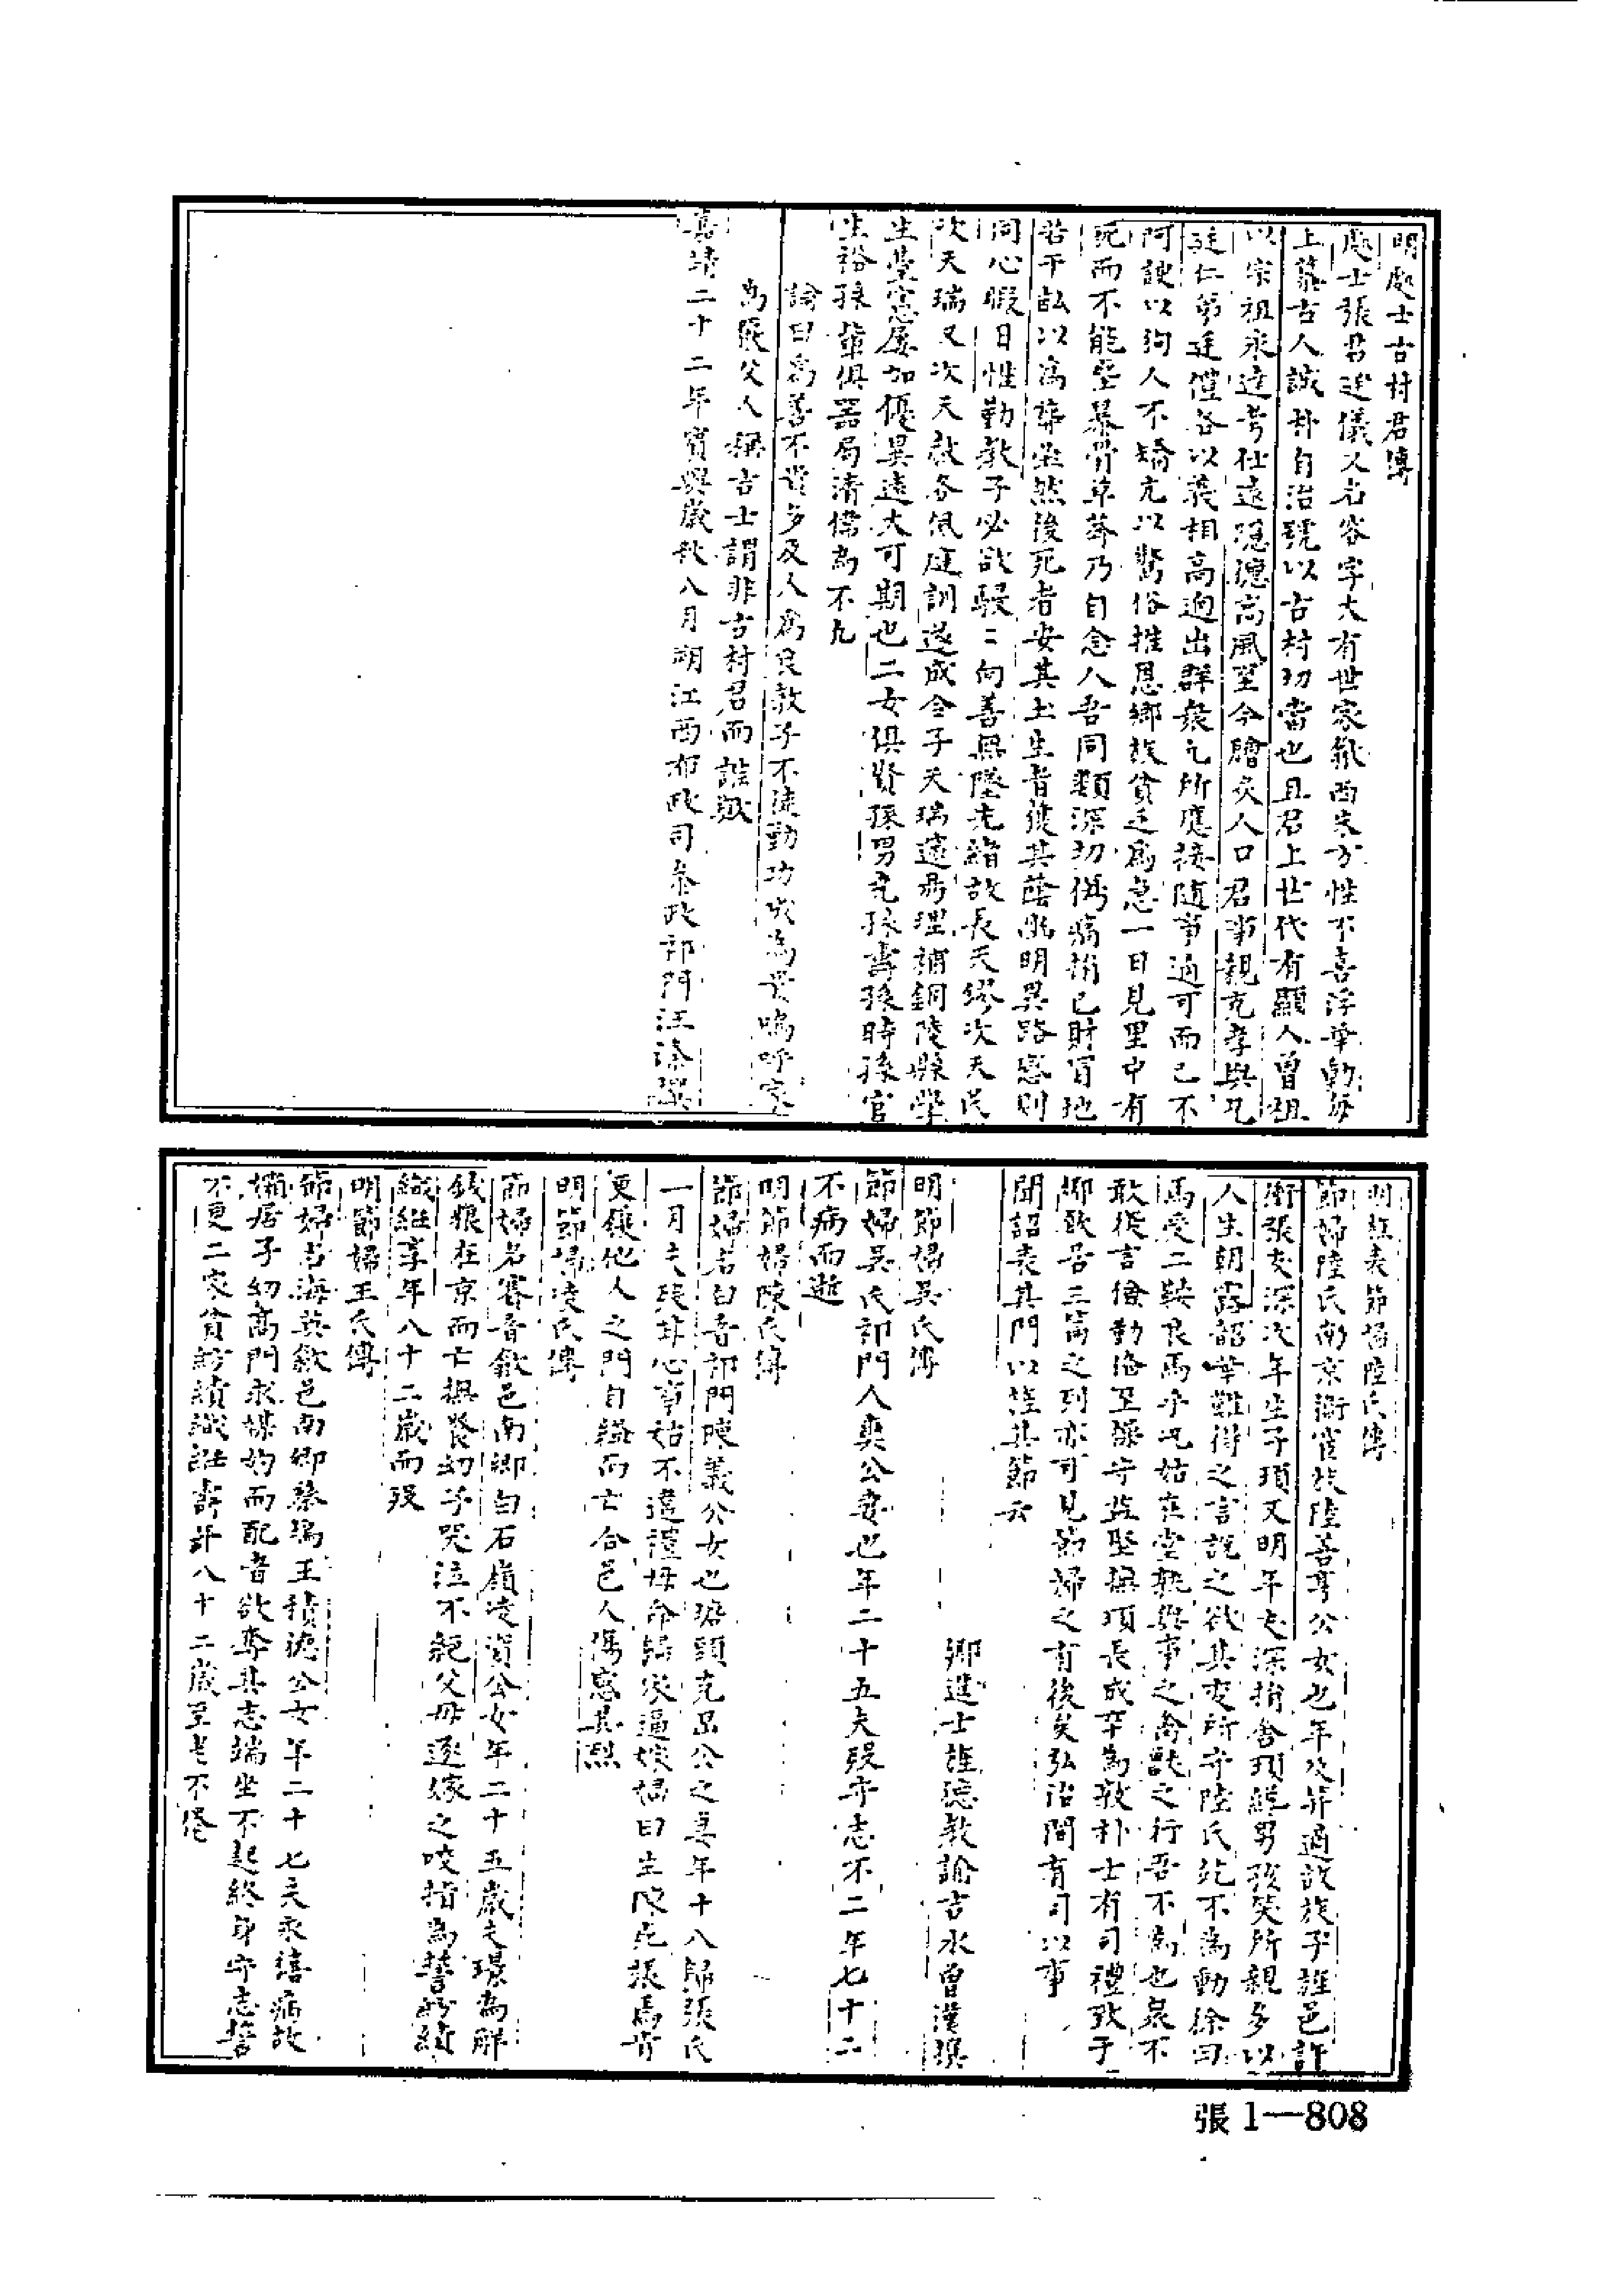 明處士古村君傳
處士張君廷儀又名容字大有世家歙西朱方性不喜浮華動每
上慕古人誠朴自治號以古村切當也且君上世代有顯人曾祖
以宗祖永達考仕遠隱德高風至今膾炙人口君事親克孝與兄
廷仁弟廷僼各以義相高迥出群衆凡所應接隨事適可而已不
阿諛以狥人不矯亢以驚俗推恩鄉族貧乏為急一日見里中有
死而不能塋暴骨草莽乃自念人吾同類深切傷痛捐己財買地
若干畝以為葬塋然後死者安其土生者獲其蔭幽明異路感則
同心暇日惟勤教子必欲駸二向善無墜先緒故長天繆次天民
次天瑞又次天敘各佩庭訓遂成令子天瑞遠為理補銅陵縣學
生臺憲屢加優異遠大可期也二女俱賢孫男堯孫壽孫時孫官
生裕孫輩俱器局清偉為不凡
論曰為善不貴多及人為良教子不徒勤功成為貴嗚呼家
為張父人稱古士謂非古村君而誰歟
嘉靖二十二年賓興歲秋八月朔江西布政司參政祁門汪溱撰
明旌表節婦陸氏傳
節婦陸氏南京衛官族陸善亨公女也年及笄適故族子誰邑許
衛張友深次年生子瑣又明年夫深捐舍瑣纔男孩笑所親多以
人生朝露韶華難得之言說之欲其変所守陸氏訖不為動徐曰
馬受二鞍良馬乎兄姑在堂孰與事之禽獸之行吾不為也眾不
敢復言儉勤恪至縣守益堅撫瑣長成卒為敦朴士有司禮致于
鄉飲居三賓之列亦可見節婦之有後矣弘治間有司以事
聞詔表其門以旌其節云
鄉進士旌德教諭吉水曾漢撰
明節婦吳氏傳
節婦吳氏祁門人奭公妻也年二十五夫歿守志不二年七十二
不病而逝
明節婦陳氏傳
節婦名白音祁門陳義公女也塘頭克昂公之妻年十八歸張氏
一月夫歿苦心事姑不違禮母命歸家逼嫁婦曰生陳死張焉肯
更儷他人之門自縊而亡合邑人傷感其烈
明節婦凌氏傳
節婦名賽音歙邑南鄉白石嶺凌賞公女年二十五歲夫璟為解
錢糧在京而亡撫養幼子哭泣不絕父母逐嫁之咬指為誓紡績
織絍享年八十二歲而歿
明節婦王氏傳
節婦名海英歙邑南鄉蔡塢王積德公女年二十七夫永禧病故
孀居子幼高門求媒妁而配者欲奪其志端坐不起終身守志誓
不更二家貧紡績織絍壽卄八十二歲至老不倦
張 1—808